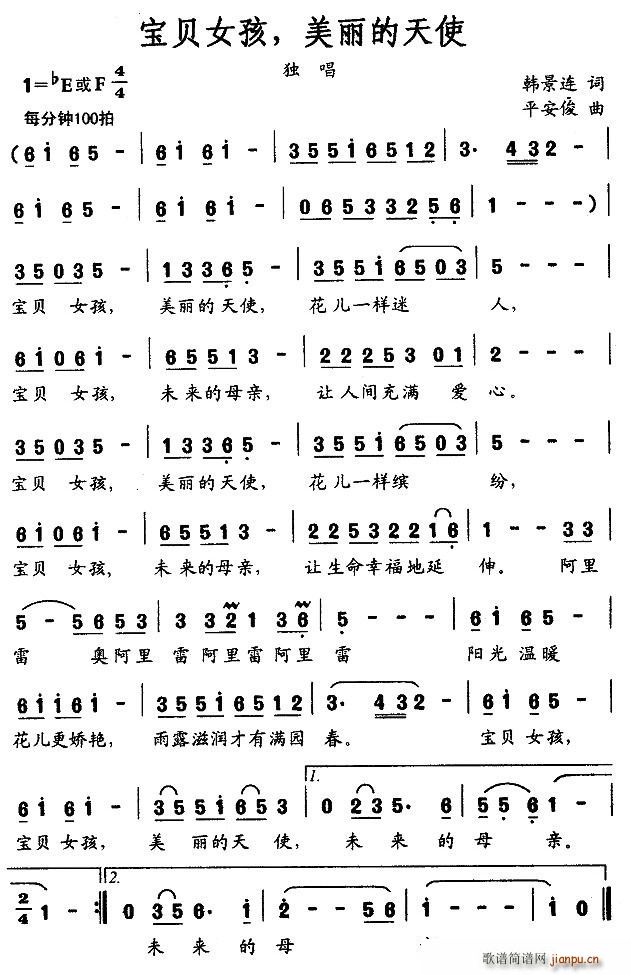 宝贝女孩，美丽的天使
独唱
1=♭E或F 4/4
韩景连 词
每分钟100拍
平安俊 曲
(6i 65 - | 6i 6i - | 355i6512 | 3· 432 - |
6i 65 - | 6i 6i - | 06533256 | 1 - - ) |
35035 - | 13365 - | 355i6503 | 5 - - - |
宝贝 女孩, 美丽的天使, 花儿一样迷 人,
6i06i - | 65513 - | 22253 01 | 2 - - - |
宝贝 女孩, 未来的母亲, 让人间充满 爱 心。
35035 - | 13365 - | 355i6503 | 5 - - - |
宝贝 女孩, 美丽的天使, 花儿一样缤 纷,
6i06i - | 65513 - | 22532216 | 1 - - 33 |
宝贝 女孩, 未来的母亲, 让生命幸福地延 伸。 阿里
5 - 5653 | 3 321 36 | 5 - - - | 6i 65 - |
雷 奥阿里 雷阿里雷阿里 雷 阳光 温暖
6ii6i - | 355i6512 | 3· 432 - | 6i 65 - |
花儿更娇艳, 雨露滋润才有满园 春。 宝贝 女孩,
1.
6i 6i - | 355i653 | 0 235· 6 | 556 - |
宝贝 女孩, 美 丽的天 使, 未 来 的 母 亲。
2.
2/4 1 - :| 0 356· i | 2 - - 56 | i - - - | i - i 0 ||
未 来 的 母
歌谱简谱网
jianpu.cn